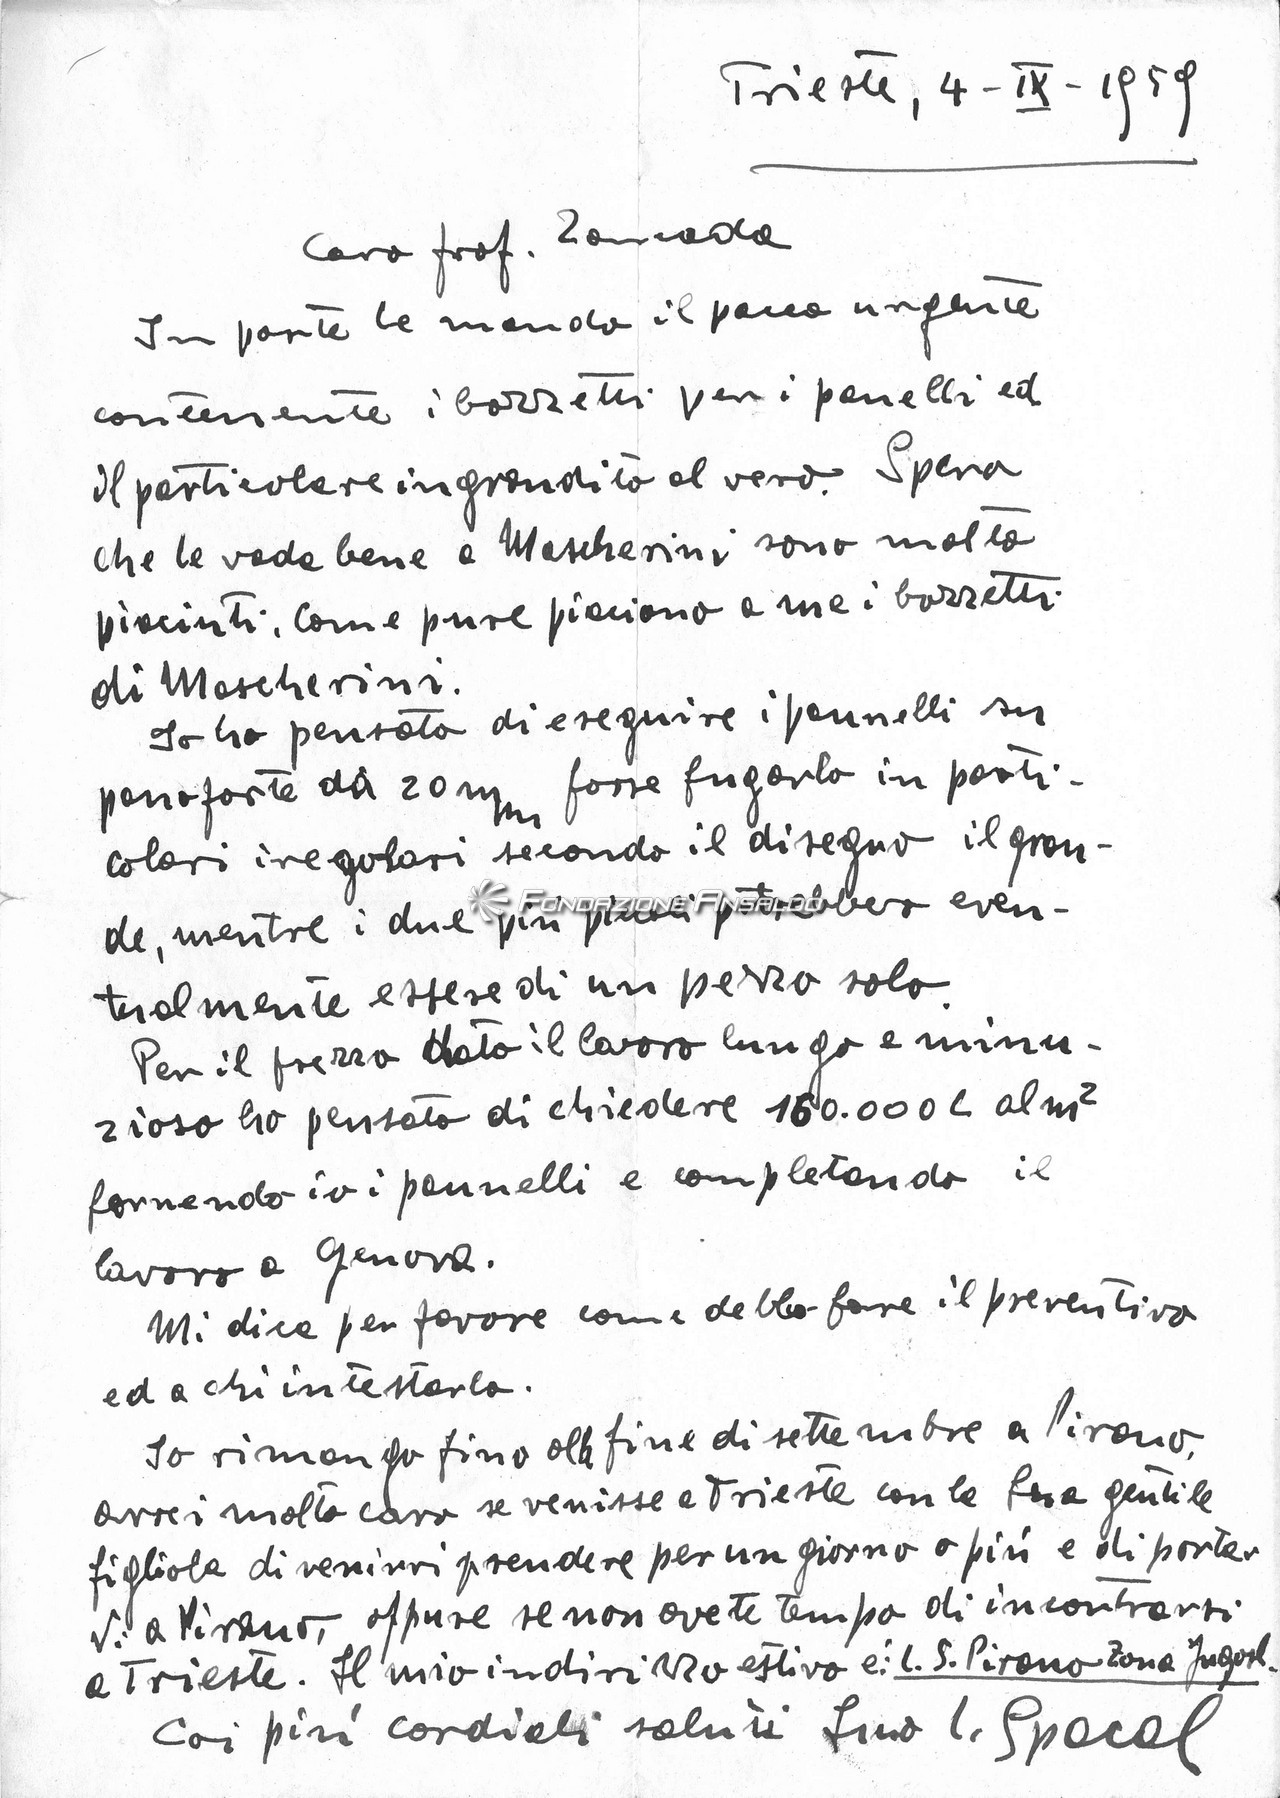 Trieste, 4 - IX - 1959
Caro prof. Zoncada
In parte le mando il pacco urgente
contenente i bozzetti per i panelli ed
il particolare ingrandito al vero. Spero
che le vada bene a Mascherini sono molto
piaciuti, come pure piaciono a me i bozzetti
di Mascherini.
Io ho pensato di eseguire i pannelli su
panoforte da 20 mm forse fugarlo in parti-
colari iregolari secondo il disegno il gran-
de, mentre i due più piccoli potrebbero even-
tualmente essere di un pezzo solo.
Per il prezzo dato il lavoro lungo e minu-
zioso ho pensato di chiedere 160.000 L al m²
fornendo io i pannelli e completando il
lavoro a Genova.
Mi dica per favore come debbo fare il preventivo
ed a chi intestarlo.
Io rimango fino alla fine di settembre a Pirano,
avrei molto caro se venisse a Trieste con la Sua gentile
figliola di venirvi prendere per un giorno o più e di portar
vi a Pirano, oppure se non avete tempo di incontrarsi
a Trieste. Il mio indirizzo estivo è: L. S. Pirano Zona Jugosl.
Coi più cordiali saluti Suo L. Spacal
Fondazione Ansaldo